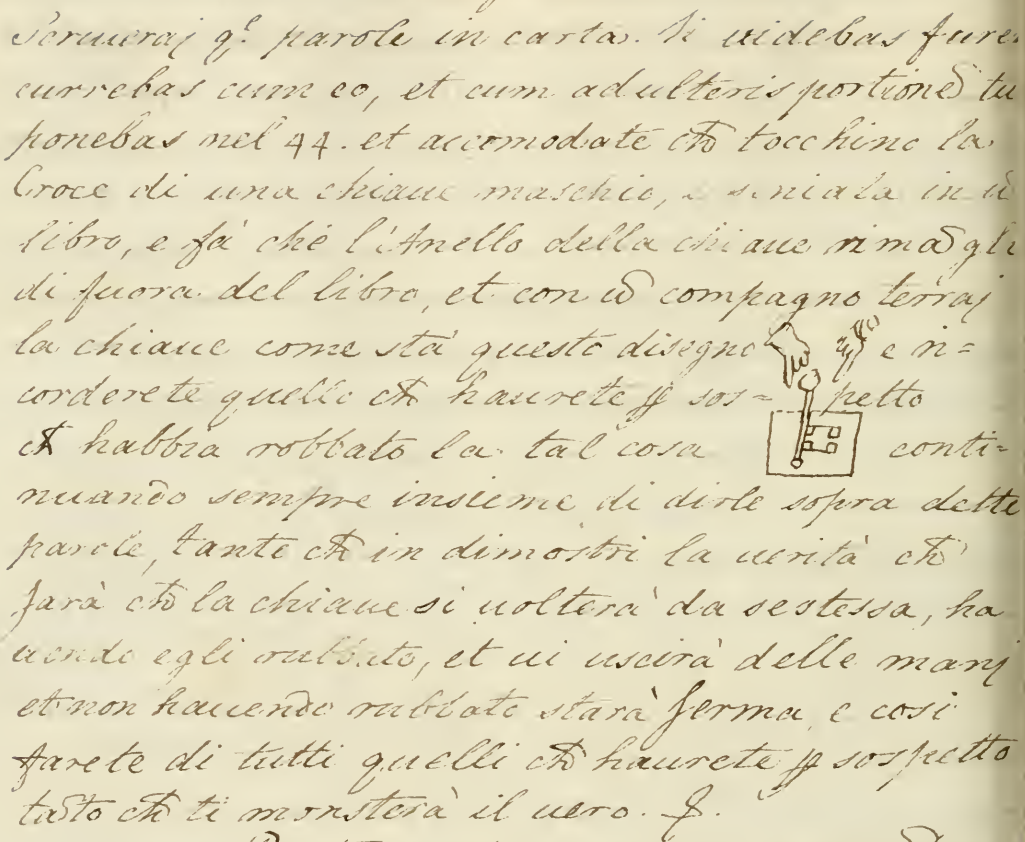 Scriueraj q.e parole in carta. Si uidebas fure
currebas cum eo, et cum adulteris portionẽ tu
ponebas nel 44. et accomodate ch̃ tocchino la
Croce di una chiaue maschio, e seniala in ũ
libro, e fà che l'Anello della chiaue rimãgli
di fuora del libro, et con ũ compagno terraj
la chiaue come stà questo disegno e ri=
corderete quello ch̃ haurete ꝑ sos= petto
ch̃ habbia robbato la tal cosa conti=
nuando sempre insieme di dirle sopra dette
parole, tante ch̃ in dimostri la uerità ch̃
farà ch̃ la chiaue si uolterà da sestessa, ha
uendo egli rubbato, et ui uscirà delle manj
et non hauendo rubbato starà ferma e così
farete di tutti quelli ch̃ haurete ꝑ sospetto
tãto ch̃ ti monsterà il uero.